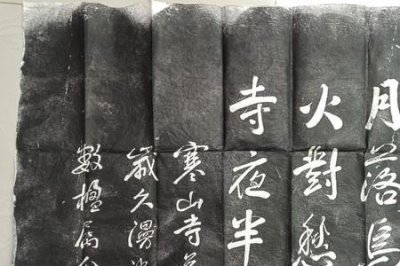 月落烏
火對愁
寺夜半
寒山寺
歲久漫
數楹屬